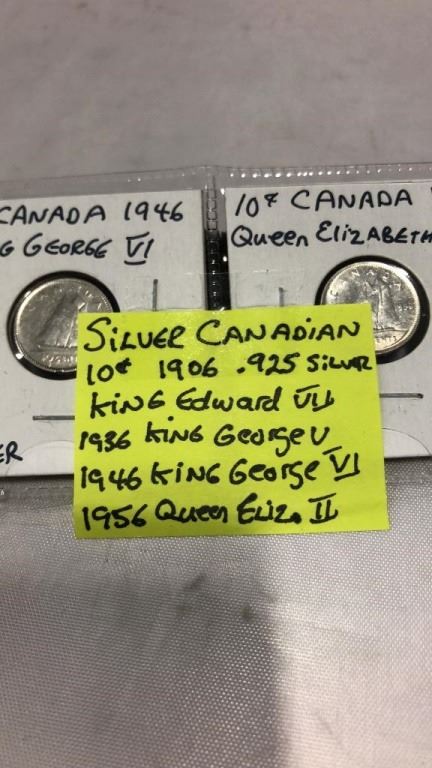 CANADA 1946
G GEORGE VI
10¢ CANADA
Queen ELIZABETH
SILVER CANADIAN
10¢ 1906 .925 SILVER
KING Edward VII
1936 KING George V
1946 KING George VI
1956 Queen Eliz. II
ER